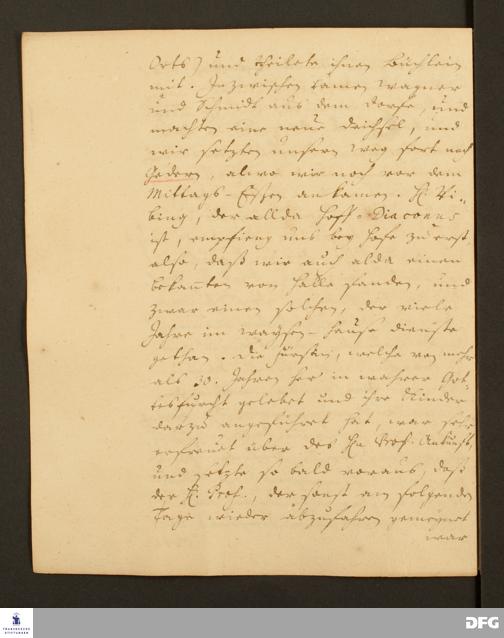 Orts) und theilete ihnen Büchlein
mit. Inzwischen kamen Wagner
und Schmidt aus dem Dorfe, und
machten eine neue Deichsel, und
wir setzten unsern Weg fort nach
Gedern, alwo wir noch vor dem
Mittags-Essen ankamen. H. Vi-
bing, der allda Hoff-Diaconus
ist, empfieng uns bey Hofe zuerst,
also, daß wir auch alda einen
bekanten von Halle fanden, und
zwar einen solchen, der viele
Jahre im Waysen-Hause dienste
gethan. Die Fürstin, welche von mehr
als 30. Jahren her in wahrer Got-
tesfurcht gelebet und ihre Kinder
darzu angeführet hat, war sehr
erfreuet über des Hn Prof. Ankunft,
und setzte so bald voraus, daß
der H. Prof., der sonst am folgenden
Tage wieder abzufahren gemeynet
war
FRANCKESCHE
STIFTUNGEN
DFG